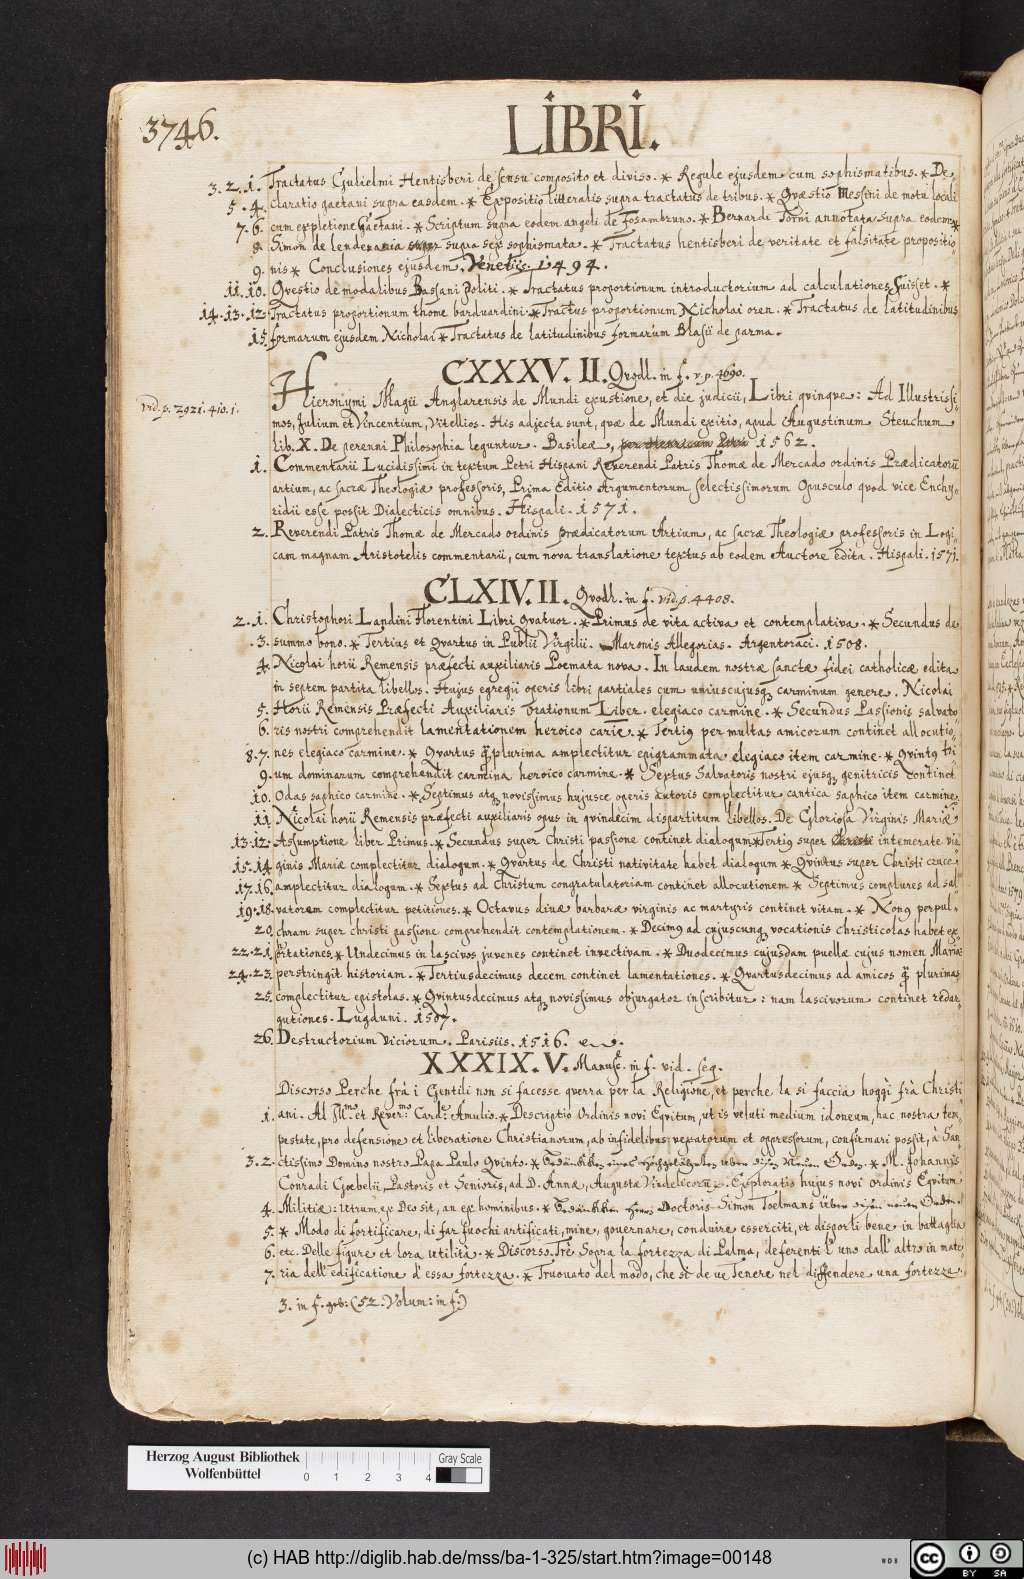 3746.
LIBRI.
3. 2. 1. Tractatus Gulielmi Hentisberi de sensu composito et diviso. * Regule ejusdem cum sophismatibus. * De-
5. 4. claratio gaetani supra easdem. * Expositio litteralis supra tractatus de tribus. * Qvæstio Messini de motu locali
7. 6. cum expletione Gaetani. * Scriptum supra eodem angeli de Fosambruno. * Bernardi Torni annotata supra eodem *
8. Simon de lendenaria supra sex sophismata. * Tractatus hentisberi de veritate et falsitate propositio
9. nis * Conclusiones ejusdem. Venetiis. 1494.
11. 10. Qvestio de modalibus Bassani Politi. * Tractatus proportionum introductorium ad calculationes Suisset. *
14. 13. 12. Tractatus proportionum thome barduardini. * Tractus proportionum Nicholai oren. * Tractatus de latitudinibus
15. formarum ejusdem Nicholai * Tractatus de latitudinibus formarum Blasii de parma.
CXXXV. II. Qvodl. in f. v. p. 4690.
vid. p. 2921. 410. 1.
Hieronymi Magii Anglarensis de Mundi exustione, et die judicii, Libri qvinqve: Ad Illustrissi-
mos, Julium et Vincentium, Vitellios. His adjecta sunt, qvæ de Mundi exitio, apud Augustinum Steuchum
lib. X. De perenni Philosophia leguntur. Basileæ, per Henricum Petri 1562.
1. Commentarii Lucidissimi in textum Petri Hispani Reverendi Patris Thomæ de Mercado ordinis Prædicatorū
artium, ac sacræ Theologiæ professoris, Prima Editio Argumentorum selectissimorum Opusculo qvod vice Enchy-
ridii esse possit Dialecticis omnibus. Hispali. 1571.
2. Reverendi Patris Thomæ de Mercado ordinis prædicatorum Artium, ac sacræ Theologiæ professoris in Logi-
cam magnam Aristotelis commentarii, cum nova translatione textus ab eodem Auctore edita. Hispali. 1571.
CLXIV. II. Qvodl. in f. vid. p. 4408.
2. 1. Christophori Landini Florentini Libri qvatuor. * Primus de vita activa et contemplativa. * Secundus de
3. summo bono. * Tertius et qvartus in Publii Virgilii Maronis Allegorias. Argentoraci. 1508.
4. Nicolai horii Remensis præfecti auxiliaris Poemata nova. In laudem nostræ sanctæ fidei catholicæ edita
in septem partita libellos. Hujus egregii operis libri partiales cum uniuscujusq carminum genere. Nicolai
5. Horii Remensis Præfecti Auxiliaris orationum Liber. elegiaco carmine. * Secundus Passionis salvato-
6. ris nostri comprehendit lamentationem heroico carie. * Tertig per multas amicorum continet allocutio-
8. 7. nes elegiaco carmine. * Qvartus qꝫplurima amplectitur epigrammata elegiaco item carmine. * Qvintg tri
9. um dominarum comprehendit carmina heroico carmine. * Sextus Salvatoris nostri ejusq genitricis continet
10. Odas saphico carmine. * Septimus atq novissimus hujusce operis autoris complectitur cantica saphico item carmine.
11. Nicolai horii Remensis præfecti auxiliaris opus in qvindecim dispartitum libellos. De Gloriosa Virginis Mariæ
13. 12. Assumptione liber Primus. * Secundus super Christi passione continet dialogum * Tertig super Christi intemerate vir-
15. 14. ginis Mariæ complectitur dialogum. * Qvartus de Christi nativitate habet dialogum * Qvintus super Christi cruce
17. 16. amplectitur dialogum. * Sextus ad Christum congratulatoriam continet allocutionem * Septimus complures ad sal-
19. 18. vatorem complectitur petitiones. * Octavus divæ barbaræ virginis ac martyris continet vitam. * Nong perpul-
20. chram super christi passione comprehendit contemplationem. * Decimg ad cujuscunq vocationis christicolas habet ex-
22. 21. hortationes * Undecimus in lascivos juvenes continet invectivam. * Duodecimus cujusdam puellæ cujus nomen Mariæ
24. 23. perstringit historiam. * Tertiusdecimus decem continet lamentationes. * Qvartusdecimus ad amicos qꝫ plurimas
25. complectitur epistolas. * Qvintusdecimus atq novissimus objurgator inscribitur: nam lascivorum continet redar-
gutiones. Lugduni. 1507.
26. Destructorium viciorum. Parisiis. 1516.
XXXIX. V. Manusc. in f. vid. seq.
Discorso Perche frà i Gentili non si facesse guerra per la Religione, et perche la si faccia hoggi frà Christi
1. ani. Al Illmo et Revermo Carde Amulio. * Descriptio Ordinis novi Eqvitum, ut is veluti medium idoneum, hac nostra tem-
pestate, pro defensione et liberatione Christianorum, ab infidelibus vexatorum et oppressorum, confirmari possit, à San-
3. 2. ctissimo Domino nostro Papa Paulo Qvinto. * Bedäncken eines Hochgelährten über disen Neuen Orden. * M. Johannis
Conradi Gœbelii, Pastoris et Senioris, ad D. Annæ, Augustæ Vindelicorum. Exploratio hujus novi ordinis Eqvitum
4. Militiæ: utrum ex Deo sit, an ex hominibus. * Bedäncken Herrn Doctoris Simon Toelmans über disen neuen Orden.
5. * Modo di fortificare, di far fuochi artificati, mine, governare, conduire esserciti, et disporli bene in battaglia
6. etc. Delle figure et lora utilità. * Discorso. Trè Sopra la fortezza di Palma, deferenti l' uno dall' altro in mate
7. ria dell' edificatione d' essa fortezza. * Truouato del modo, che si de ue Tenere nel diffendere una fortezza.
3. in f. geb: (52. Volum: in f.)
Herzog August Bibliothek
Wolfenbüttel
0 1 2 3 4
Gray Scale
(c) HAB http://diglib.hab.de/mss/ba-1-325/start.htm?image=00148
WDB
CC BY SA